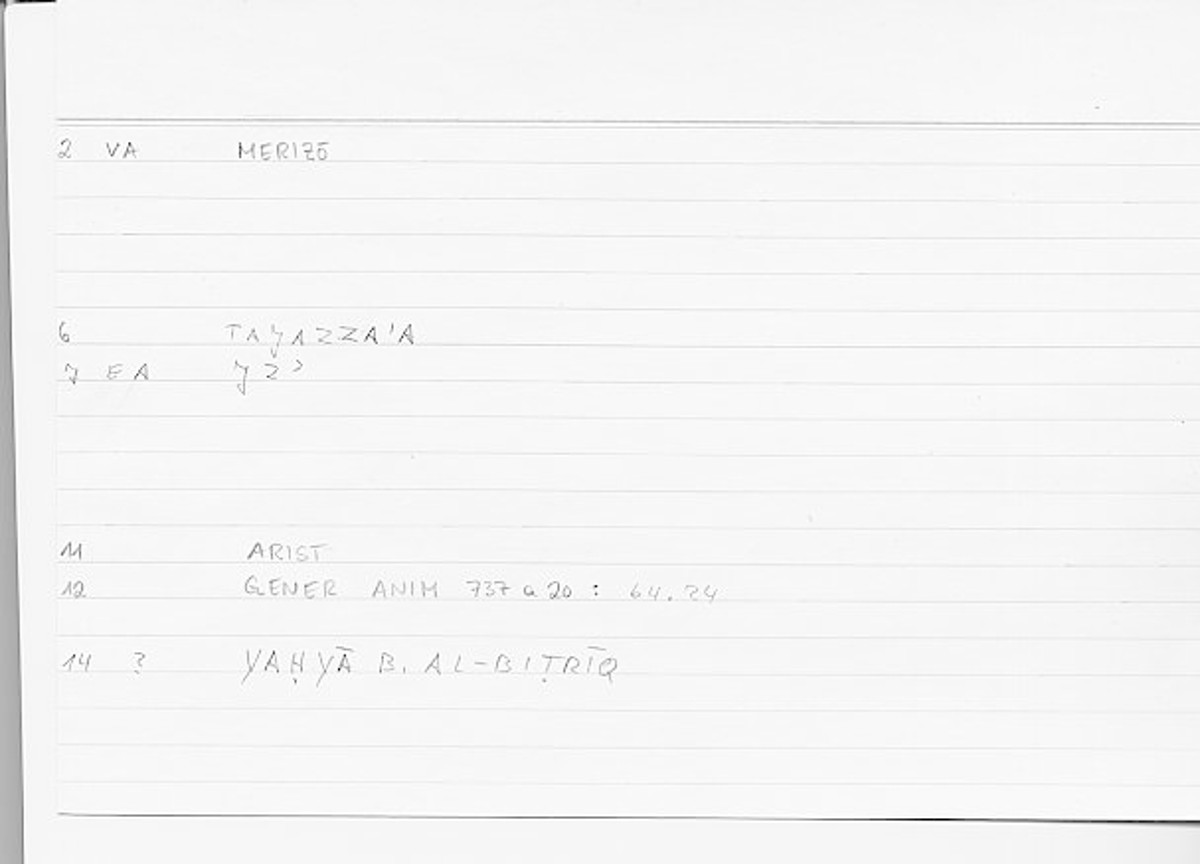 2 VA MERIZŌ
6 TAJAZZA'A
7 EA JZʾ
11 ARIST
12 GENER ANIM 737 a 20 : 64.24
14 ? YAḤYĀ B. AL-BIṬRĪQ